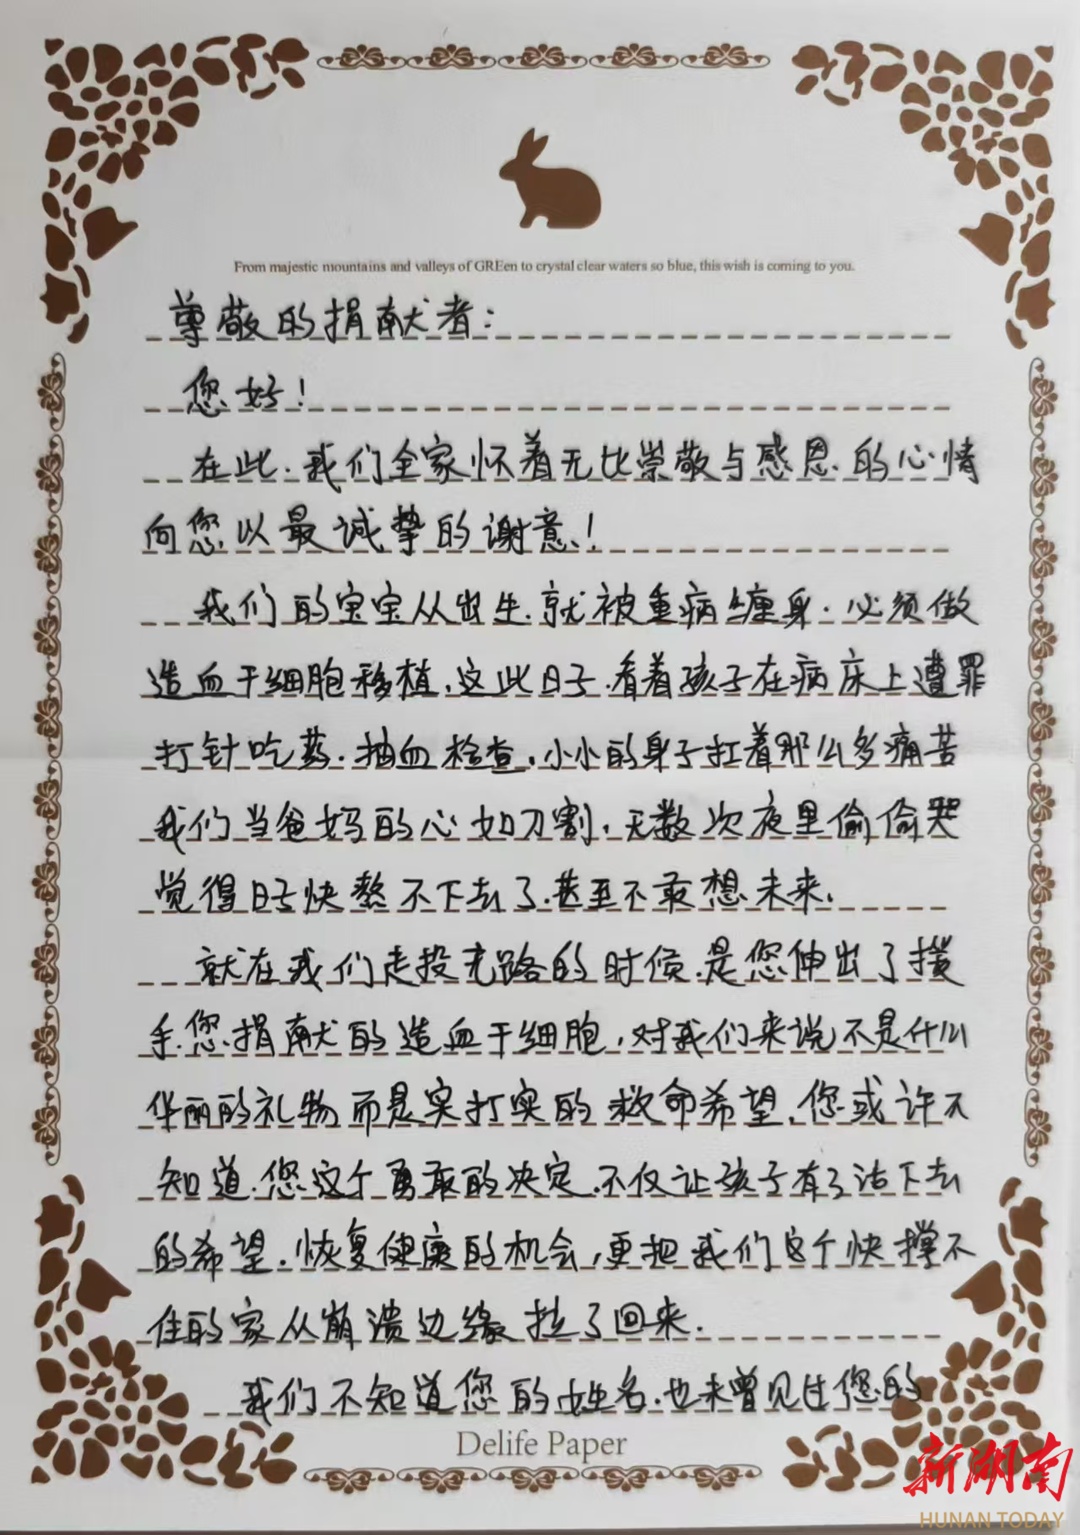 From majestic mountains and valleys of GREen to crystal clear waters so blue, this wish is coming to you.
尊敬的捐献者：
您好！
在此.我们全家怀着无比崇敬与感恩的心情
向您以最诚挚的谢意！
我们的宝宝从出生.就被重病缠身.必须做
造血干细胞移植.这些日子.看着孩子在病床上遭罪
打针吃药.抽血检查.小小的身子扛着那么多痛苦
我们当爸妈的心如刀割.无数次夜里偷偷哭
觉得日子快熬不下去了.甚至不敢想未来.
就在我们走投无路的时候.是您伸出了援
手.您捐献的造血干细胞，对我们来说不是什么
华丽的礼物而是实打实的救命希望.您或许不
知道.您这个勇敢的决定.不仅让孩子有了活下去
的希望.恢复健康的机会，更把我们这个快撑不
住的家从崩溃边缘拉了回来.
我们不知道您的姓名.也未曾见过您的
Delife Paper
新湖南
HUNAN TODAY